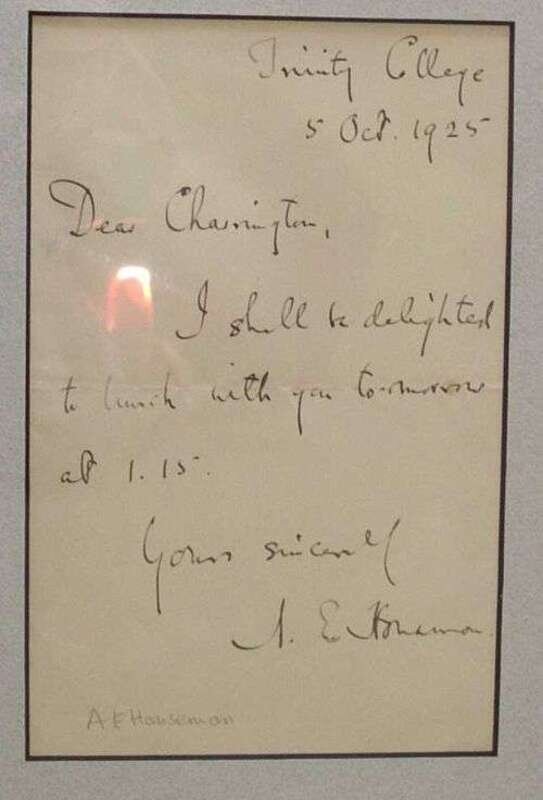 Trinity College
5 Oct. 1925
Dear Charrington,
I shall be delighted
to lunch with you to-morrow
at 1.15.
Yours sincerely
A. E. Housman.
A E Houseman